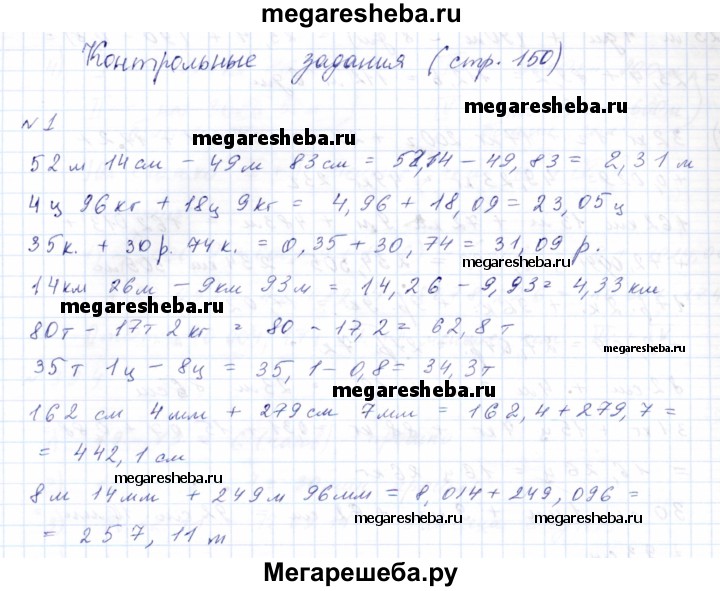 megaresheba.ru
Контрольные задания (стр. 150)
megaresheba.ru
№1
megaresheba.ru
52м 14см - 49м 83см = 52,14 - 49,83 = 2,31 м
4ц 96кг + 18ц 9кг = 4,96 + 18,09 = 23,05ц
35к. + 30р. 74к. = 0,35 + 30,74 = 31,09 р.
megaresheba.ru
14км 26м - 9км 93м = 14,26 - 9,93 = 4,33 км
megaresheba.ru
80т - 17т 2кг = 80 - 17,2 = 62,8т
megaresheba.ru
35т 1ц - 8ц = 35,1 - 0,8 = 34,3т
megaresheba.ru
162 см 4мм + 279см 7мм = 162,4 + 279,7 =
= 442,1 см
megaresheba.ru
8м 14мм + 249м 96мм = 8,014 + 249,096 =
megaresheba.ru megaresheba.ru
= 257,11 m
Мегарешеба.ру